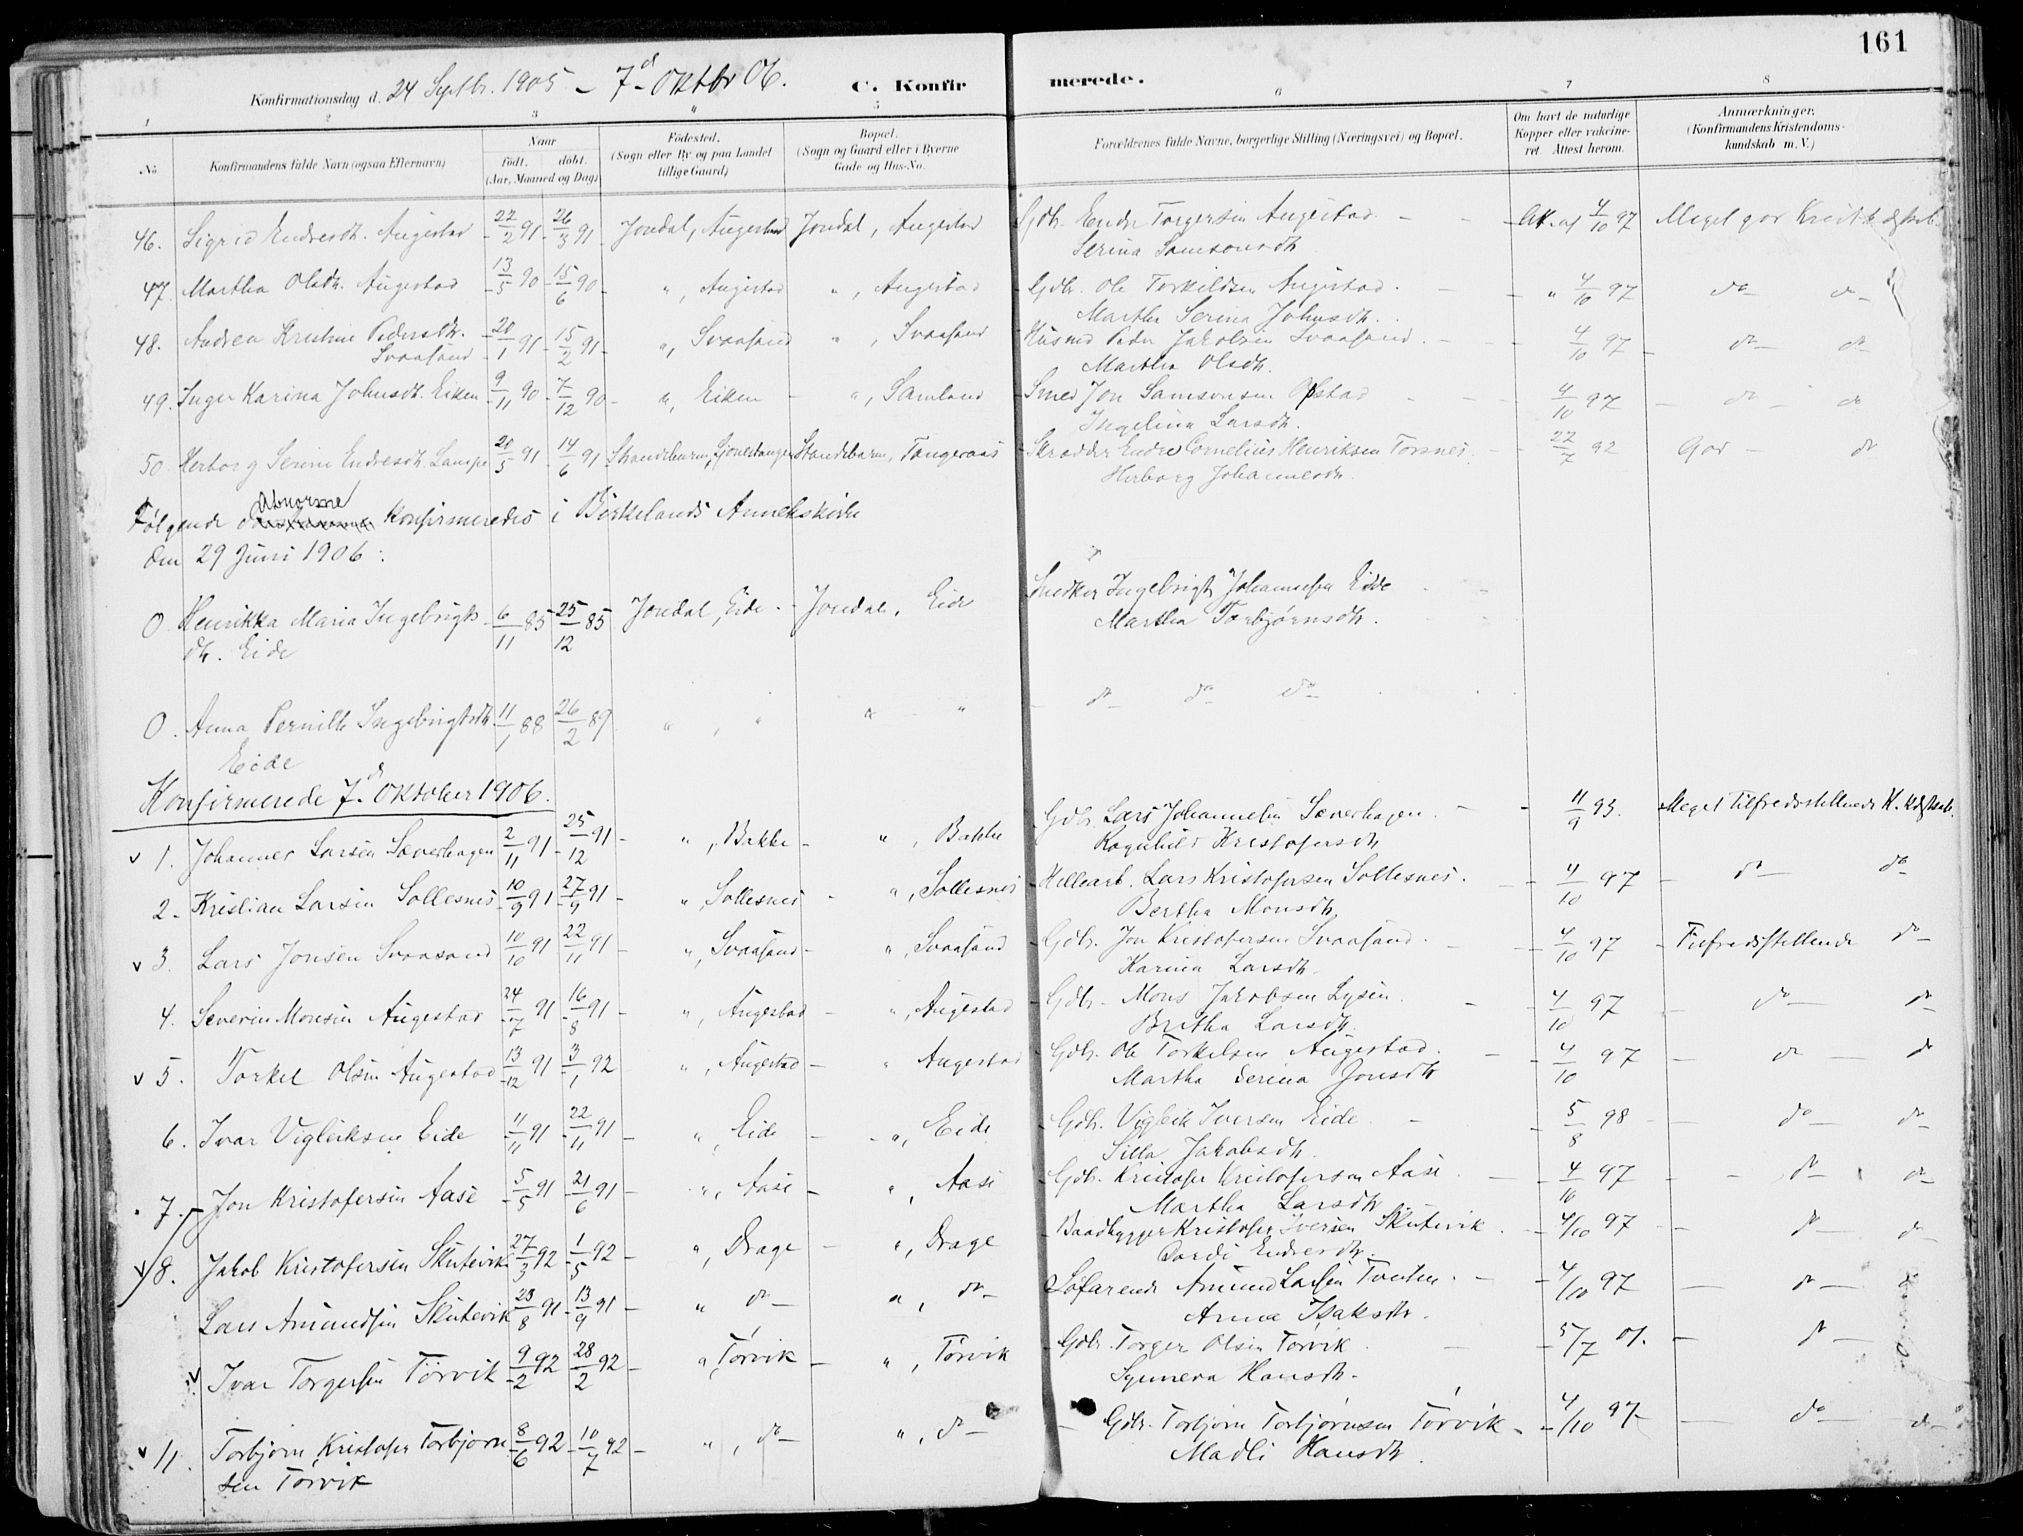 161
Konfirmationsdag d. 24 Septbr. 1905 - 7de Oktbr 06. C. Konfir merede.
1 2 3 4 5 6 7 8
No
Konfirmandens fulde Navn (ogsaa Efternavn)
Naar
födt. döbt.
(Aar, Maaned og Dag)
Födested.
(Sogn eller By og paa Landet
tillige Gaard)
Bopæl.
(Sogn og Gaard eller i Byerne
Gade og Hus-No.
Forældrenes fulde Navne, borgerlige Stilling (Næringsvei) og Bopæl.
Om havt de naturlige
Kopper eller vakcine-
ret. Attest herom.
Anmærkninger.
(Konfirmandens Kristendoms-
kundskab m. V.)
46. Sigrid Endresdtr. Augestad 22/2 91 26/3 91 Jondal, Augestad Jondal, Augestad Gdbr. Endre Torgersen Augestad. At. af 4/10 97 Meget god
Serina Samsonsdtr.
47. Martha Olsdtr. Augestad 13/5 90 15/6 90 ", Augestad ", Augestad Gdbr. Ole Torkildsen Augestad. " 4/10 97 do do
Martha Serina Johnsdtr.
48. Andrea Kristine Pedersdtr. 20/1 91 15/2 91 ", Svaasand ", Svaasand Husmd Peder Jakobsen Svaasand. 4/10 97 do do
Svaasand Martha Olsdtr.
49. Inger Karina Johnsdtr. Eiken 9/11 90 7/12 90 ", Eiken ", Samland Smed Jon Samsonsen 4/10 97 do do
Ingelina Larsdtr.
50. Herborg Serine Endresdtr. 20/5 91 14/6 91 Strandebarm, Strandebarm, Tangeraas Skrædder Endre Cornelius Henriksen Torsnes. 27/7 92 God do
Herborg Johannesdtr.
Følgende Abnorme konfirmeredes i Birkelands Annekskirke
den 29 Juni 1906:
0. Henrikka Maria Ingebrigts 6/11 85 25/12 85 Jondal, Eide Jondal, Eide Snedker Ingebrigt Johannesen Eide
dtr. Eide Martha Torbjørnsdtr.
0. Anna Pernille Ingebrigtsdtr. 11/1 88 26/2 89 " " " " do do do
Eide
Konfirmerede 7de Oktober 1906.
1. Johannes Larsen Sæverhagen 2/11 91 25/12 91 ", Bakke ", Bakke Gdbr. Lars Johannesen Sæverhagen. 11/9 93. Meget Tilfredsstillende K.
Ragnhild Kristofersdtr
2. Kristian Larsen Sollesnes 10/9 91 27/9 91 ", Sollesnes ", Sollesnes Hellearb. Lars Kristofersen Sollesnes. 4/10 97 do do
Bertha Monsdtr
3. Lars Jonsen Svaasand 10/10 91 22/11 91 ", Svaasand ", Svaasand Gdbr. Jon Kristofersen Svaasand. 4/10 97 Tilfredsstillende do
Karina Larsdtr.
4. Severin Monsen Augestad 24/7 91 16/8 91 ", Augestad ", Augestad Gdbr. Mons Jakobsen Lysen. 4/10 97 do do
Britha Larsdtr.
5. Torkel Olsen Augestad 13/12 91 3/1 92 ", Augestad " Augestad Gdbr. Ole Torkelsen Augestad. 4/10 97 do do
Martha Serina Jonsdtr
6. Ivar Vigleiksen Eide 11/11 91 22/11 91 ", Eide ", Eide Gdbr. Vigleik Iversen Eide. 5/8 98 do do
Silla Jakobsdtr.
7. Jon Kristofersen Aase 5/5 91 21/6 91 ", Aase ", Aase Gdbr. Kristofer Kristofersen Aase. 4/10 97 do do
Martha Larsdtr
8. Jakob Kristofersen Skutevik 27/3 92 1/5 92 ", Drage ", Drage Baadbygger Kristofer Iversen Skutevik. 4/10 97 do do
Endresdtr.
Lars Amundsen Skutevik 23/8 91 13/9 91 " do ", do Søfarende Amund Larsen Tveiten. 4/10 97 do
Anna Isaksdtr.
Ivar Torgersen Törvik 9/2 92 28/2 92 ", Törvik ", Törvik Gdbr. Torger Olsen Törvik. 5/7 01. do
Synneva Hansdtr.
11. Torbjørn Kristofer Torbjørn 8/6 92 10/7 92 ", do ", do Gdbr. Torbjørn Torbjørnsen Törvik 4/10 97 do do
sen Törvik Madli Hansdtr.